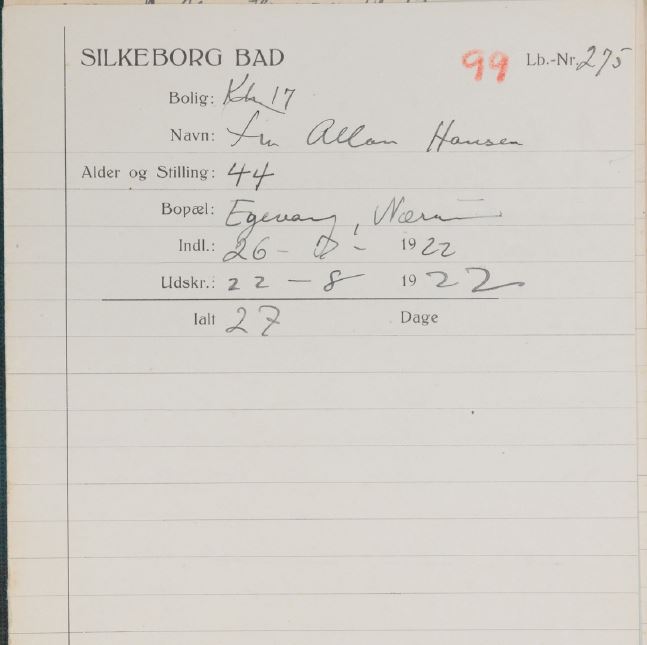 SILKEBORG BAD 99 Lb.-Nr. 275
Bolig: 17
Navn: Fru Allan Hansen
Alder og Stilling: 44
Bopæl: Egevang, Nærum
Indl.: 26 - 7 - 1922
Udskr.: 22 - 8 1922
Ialt 27 Dage